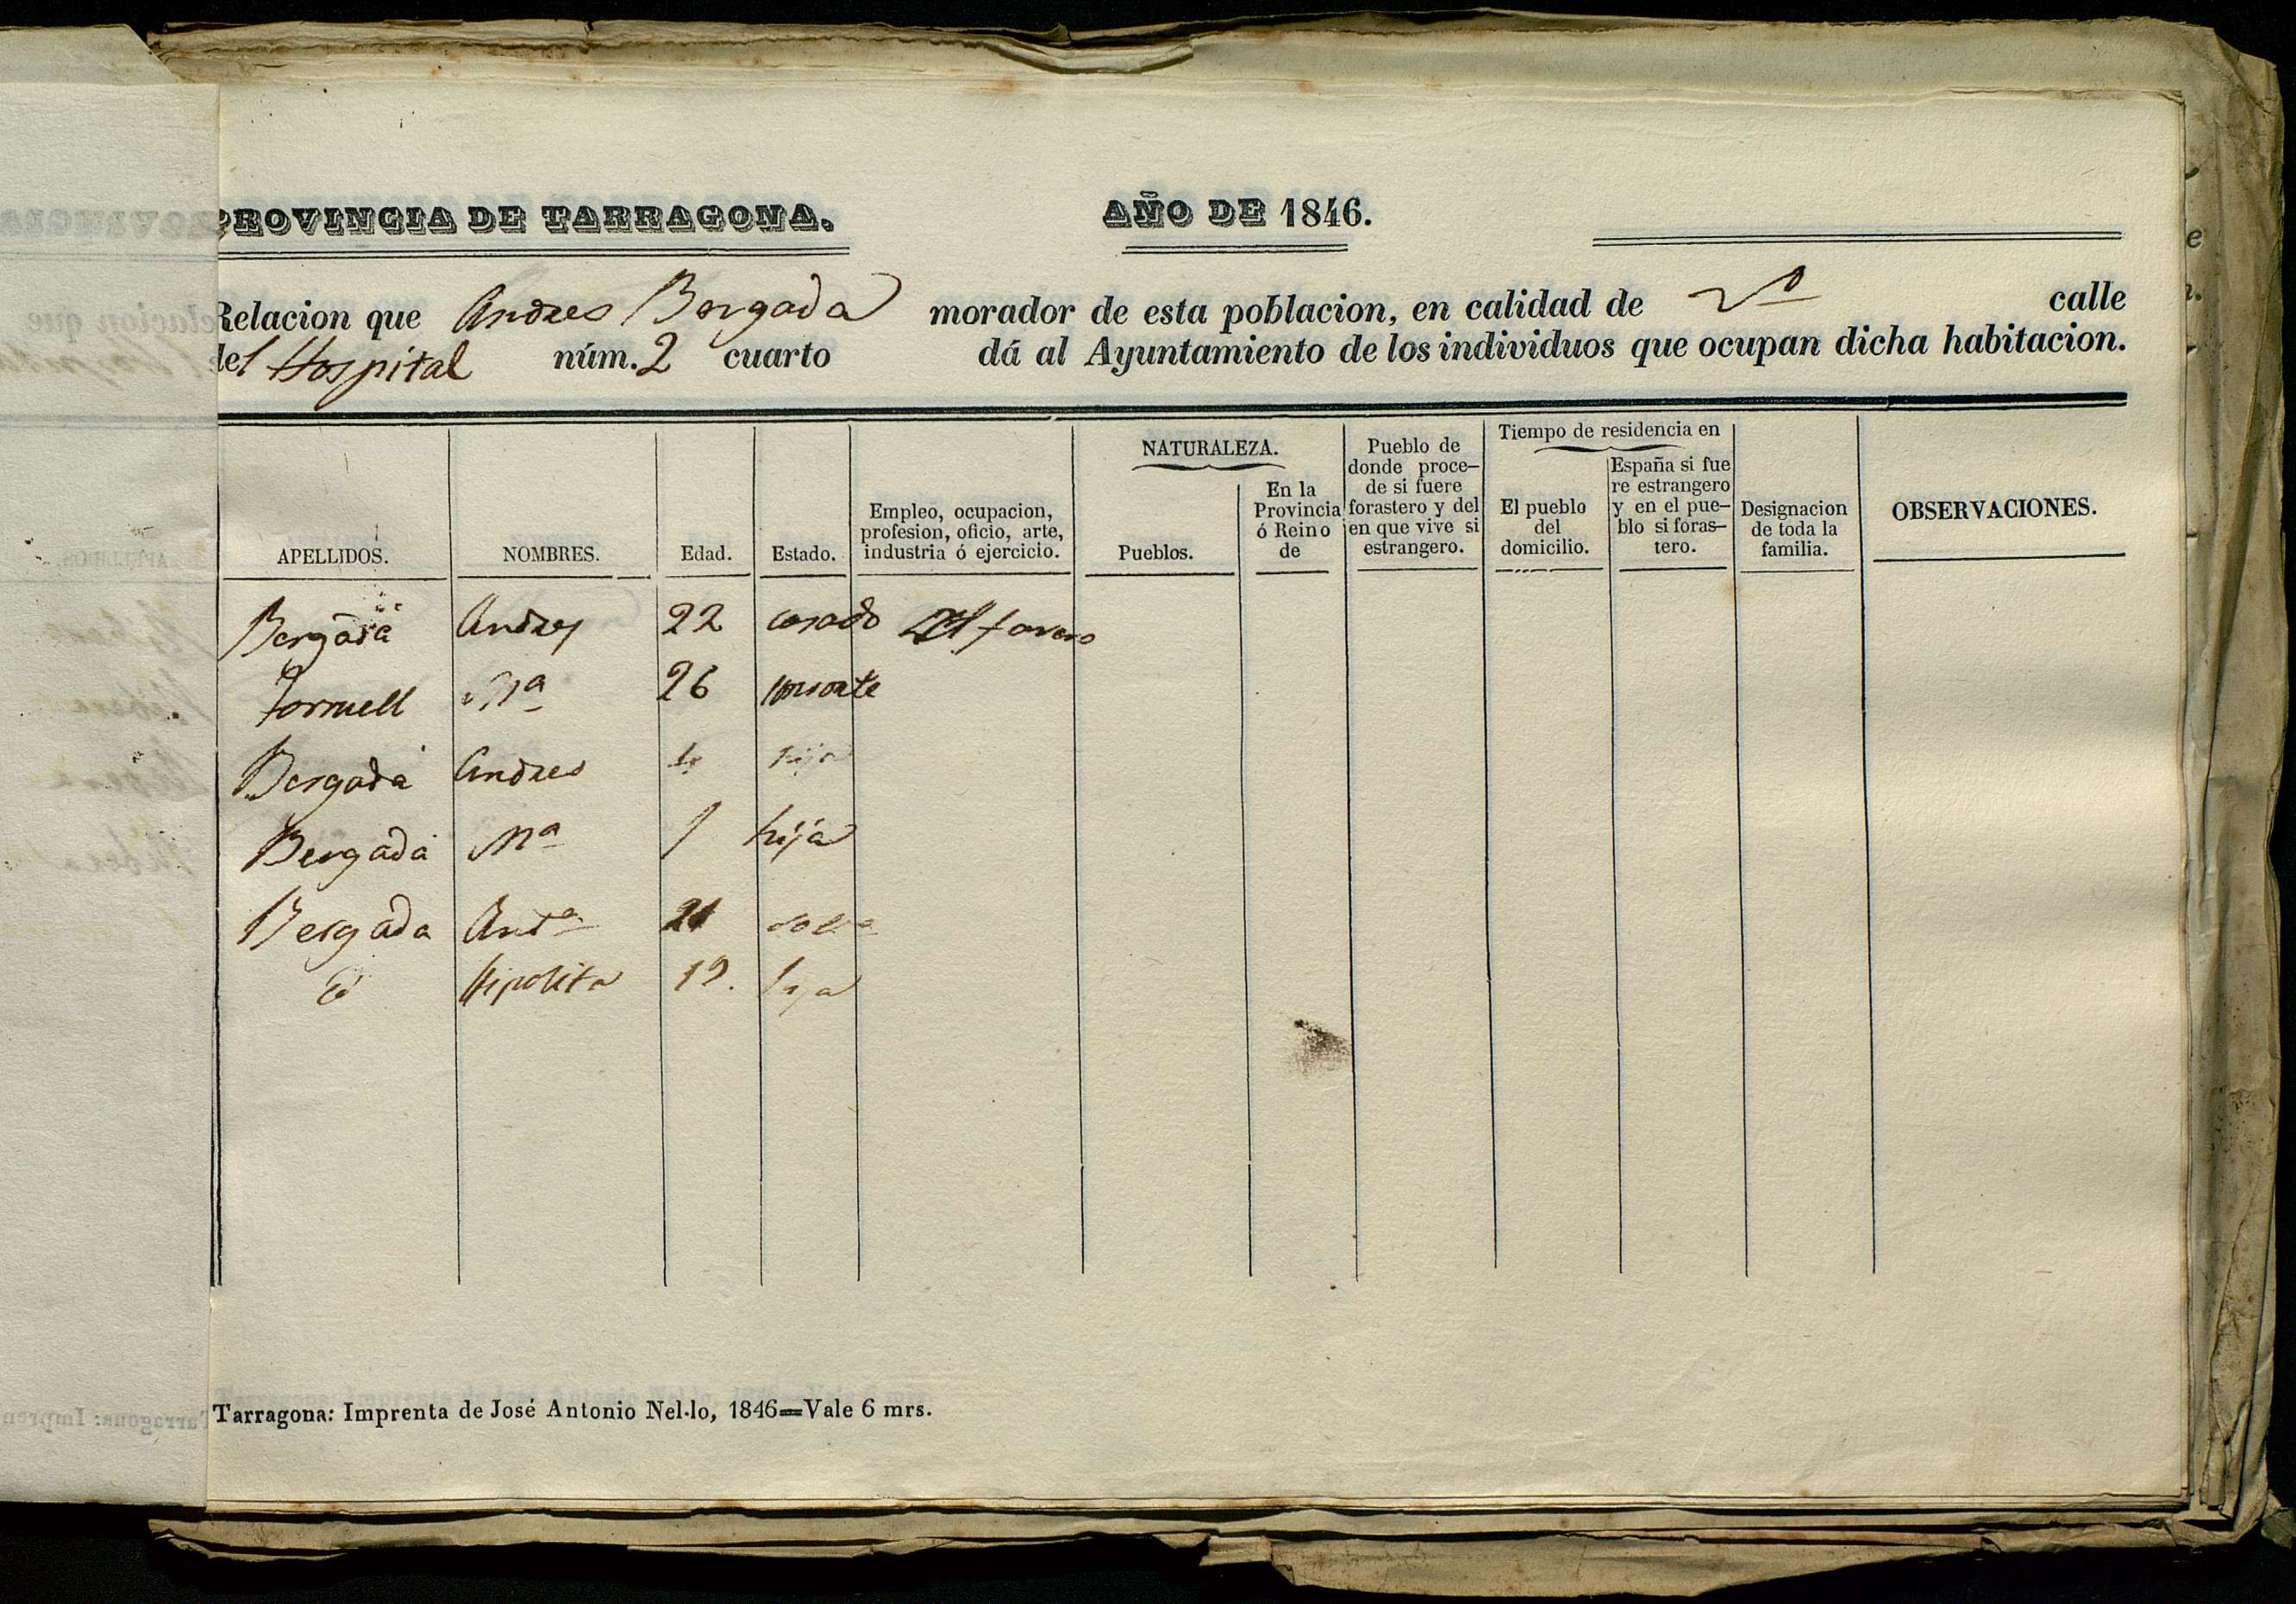 PROVINCIA DE TARRAGONA. AÑO DE 1846.
Relacion que Andres Bergada morador de esta poblacion, en calidad de vº calle
del Hospital núm. 2 cuarto dá al Ayuntamiento de los individuos que ocupan dicha habitacion.
NATURALEZA.
Tiempo de residencia en
APELLIDOS.
NOMBRES.
Edad.
Estado.
Empleo, ocupacion,
profesion, oficio, arte,
industria ó ejercicio.
Pueblos.
En la
Provincia
ó Reino
de
Pueblo de
donde proce-
de si fuere
forastero y del
en que vive si
estrangero.
El pueblo
del
domicilio.
España si fue
re estrangero
y en el pue-
blo si foras-
tero.
Designacion
de toda la
familia.
OBSERVACIONES.
Bergadá Andres 22 casado Alfarero
Tormell Mª 26 consorte
Bergadá Andres hijo
Bergadá Mª 1 hija
Bergada Antª 21 solª
Hipolita 19. hija
Tarragona: Imprenta de José Antonio Nel·lo, 1846=Vale 6 mrs.